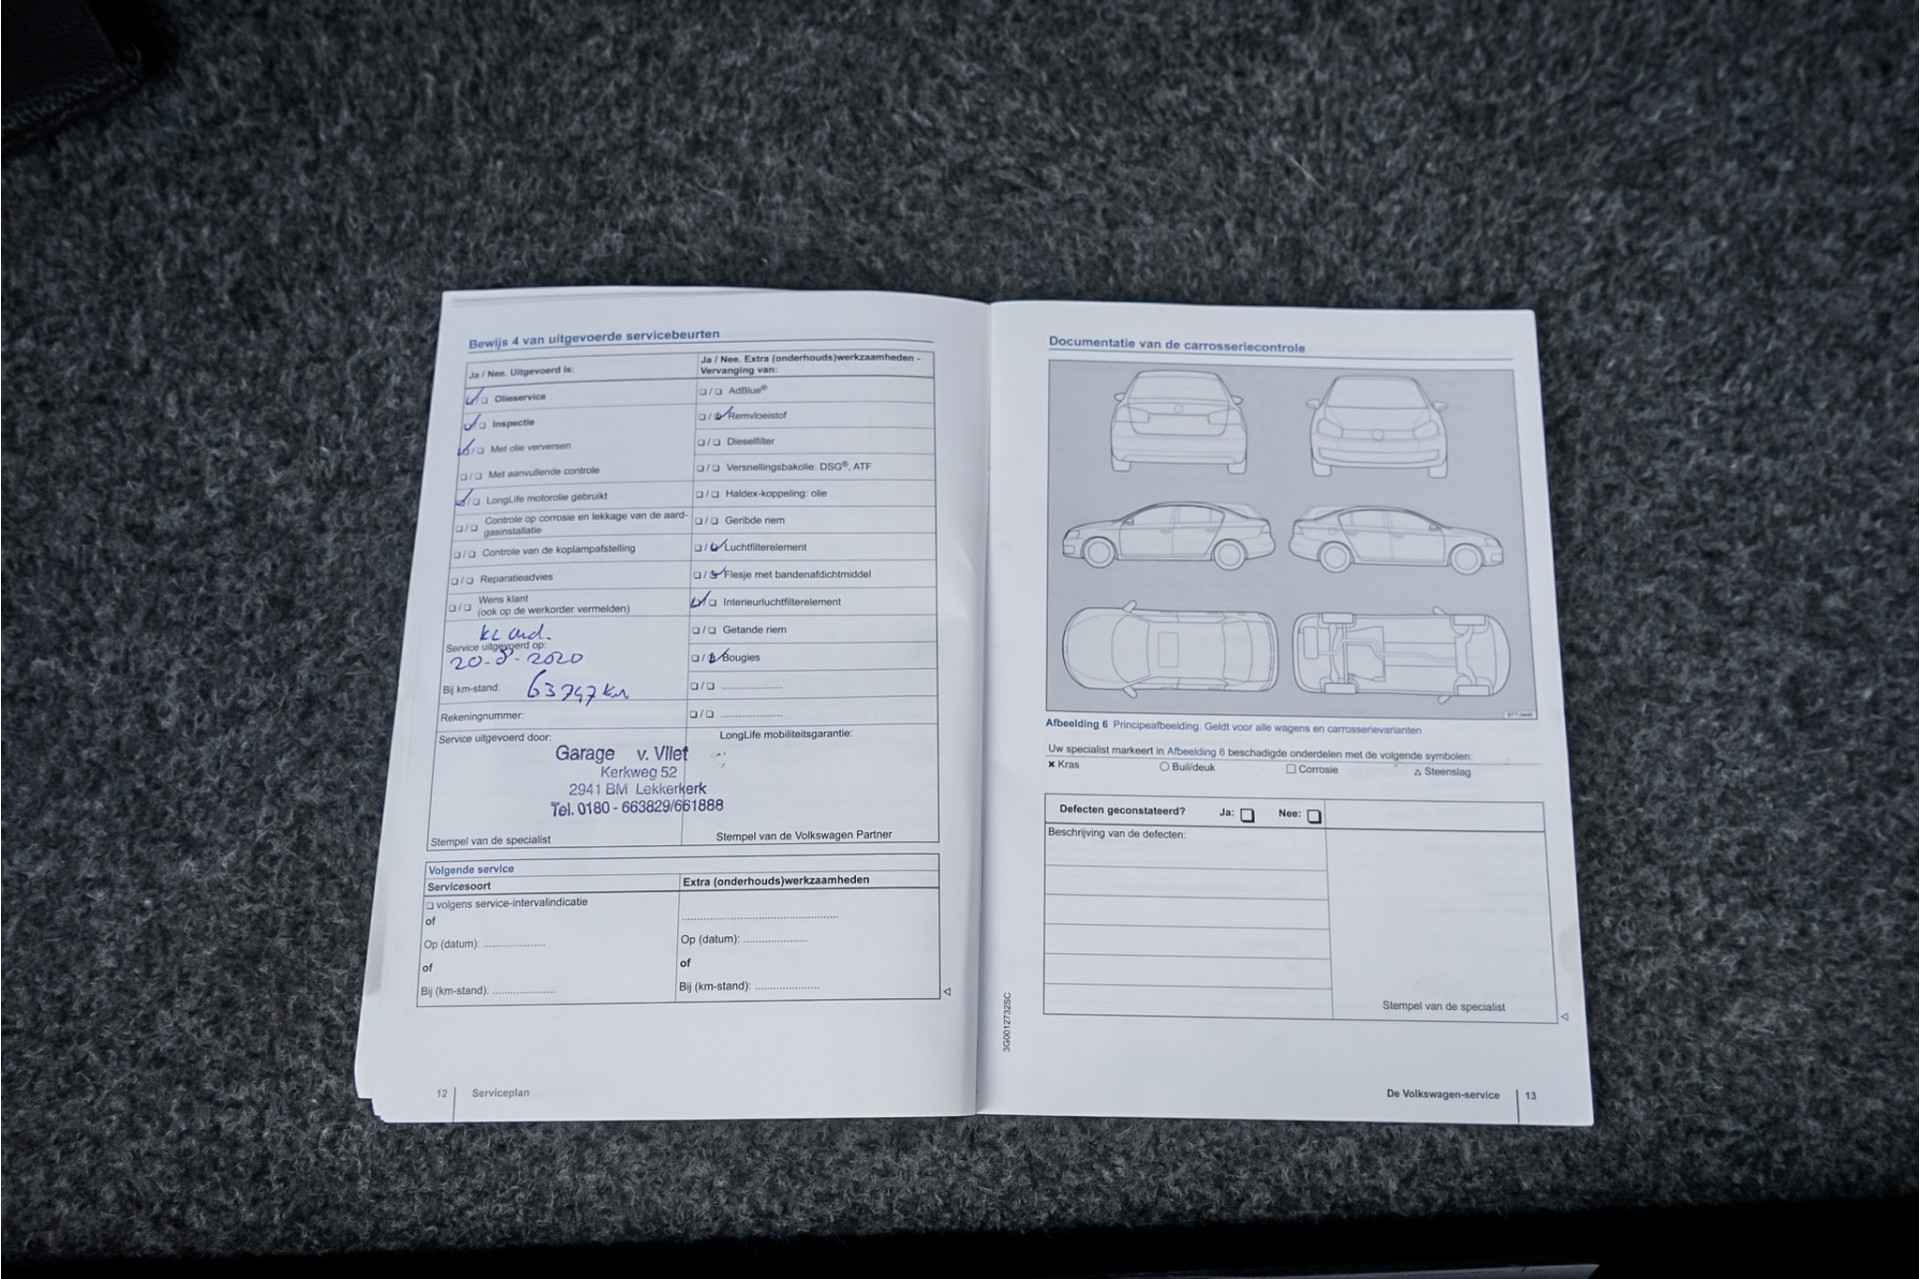 Bewijs 4 van uitgevoerde servicebeurten
Ja / Nee. Uitgevoerd is:
Olieservice
Inspectie
Met olie verversen
Met aanvullende controle
LongLife motorolie gebruikt
Controle op corrosie en lekkage van de aard-
gasinstallatie
Controle van de koplampafstelling
Reparatieadvies
Wens klant
(ook op de werkorder vermelden)
Service uitgevoerd op:
20-8-2020
Bij km-stand:
Rekeningnummer:
Ja / Nee. Extra (onderhouds)werkzaamheden -
Vervanging van:
AdBlue®
Remvloeistof
Dieselfilter
Versnellingsbakolie: DSG®, ATF
Haldex-koppeling: olie
Geribde riem
Luchtfilterelement
Flesje met bandenafdichtmiddel
Interieurluchtfilterelement
Getande riem
Bougies
Service uitgevoerd door:
Garage v. Vliet
Kerkweg 52
2941 BM Lekkerkerk
Tel. 0180 - 663829/661888
Stempel van de specialist
LongLife mobiliteitsgarantie:
Stempel van de Volkswagen Partner
Volgende service
Servicesoort
volgens service-intervalindicatie
of
Op (datum): ....................
of
Bij (km-stand): ....................
Extra (onderhouds)werkzaamheden
Op (datum): ....................
of
Bij (km-stand): ....................
12 Serviceplan
Documentatie van de carrosseriecontrole
Afbeelding 6 Principeafbeelding: Geldt voor alle wagens en carrosserievarianten
Uw specialist markeert in Afbeelding 6 beschadigde onderdelen met de volgende symbolen:
Kras Buil/deuk Corrosie Steenslag
Defecten geconstateerd? Ja: Nee:
Beschrijving van de defecten:
Stempel van de specialist
3G0012732SC
De Volkswagen-service 13